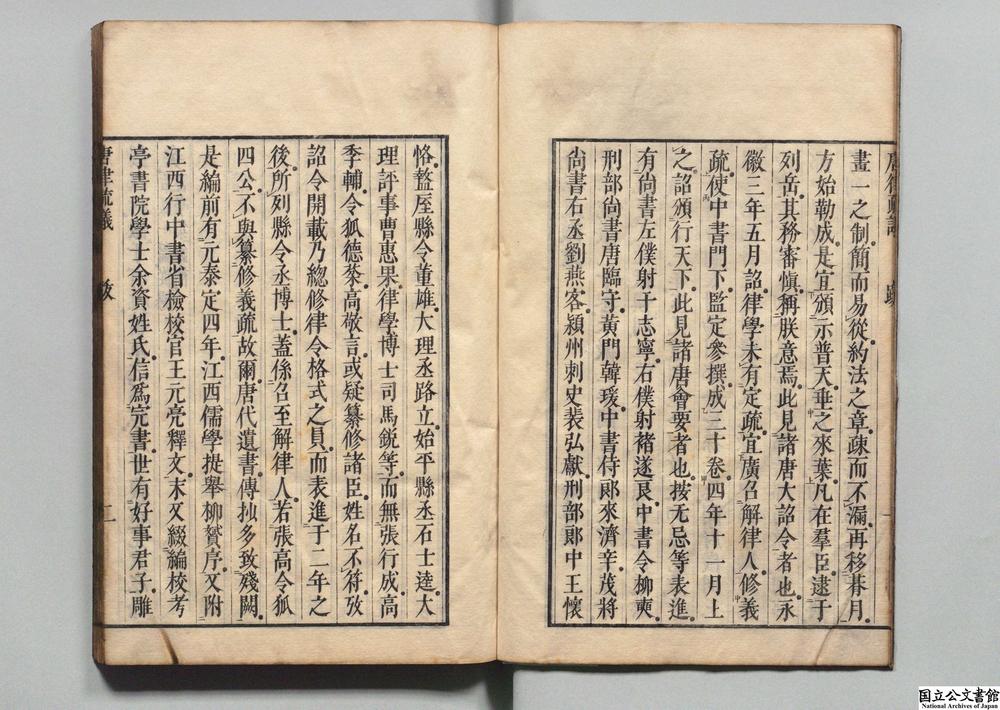 畫一之制簡而易從約法之章疎而不漏再移朞月
方始勒成是宜頒示普天垂之來葉凡在羣臣逮于
列岳其務審愼稱朕意焉此見諸唐大詔令者也永
徽三年五月詔律學未有定疏宜廣召解律人修義
疏使中書門下監定參撰成三十卷四年十一月上
之詔頒行天下此見諸唐會要者也按无忌等表進
有尙書左僕射于志寧右僕射褚遂良中書令柳奭
刑部尙書唐臨守黃門韓瑗中書侍郎來濟辛茂將
尙書右丞劉燕客潁州刺史裴弘獻刑部郎中王懷
恪盩厔縣令董雄大理丞路立始平縣丞石士逵大
理評事曹惠果律學博士司馬銳等而無張行成高
季輔令狐德棻高敬言或疑纂修諸臣姓名不符攷
詔令開載乃總修律令格式之員而表進于二年之
後所列縣令丞博士蓋係召至解律人若張高令狐
四公不與纂修義疏故爾唐代遺書傳抄多致殘闕
是編前有元泰定四年江西儒學提舉柳贇序又附
江西行中書省檢校官王元亮釋文末又綴編校考
亭書院學士余資姓氏信爲完書世有好事君子雕
唐律疏義
攷
二
国立公文書館
National Archives of Japan